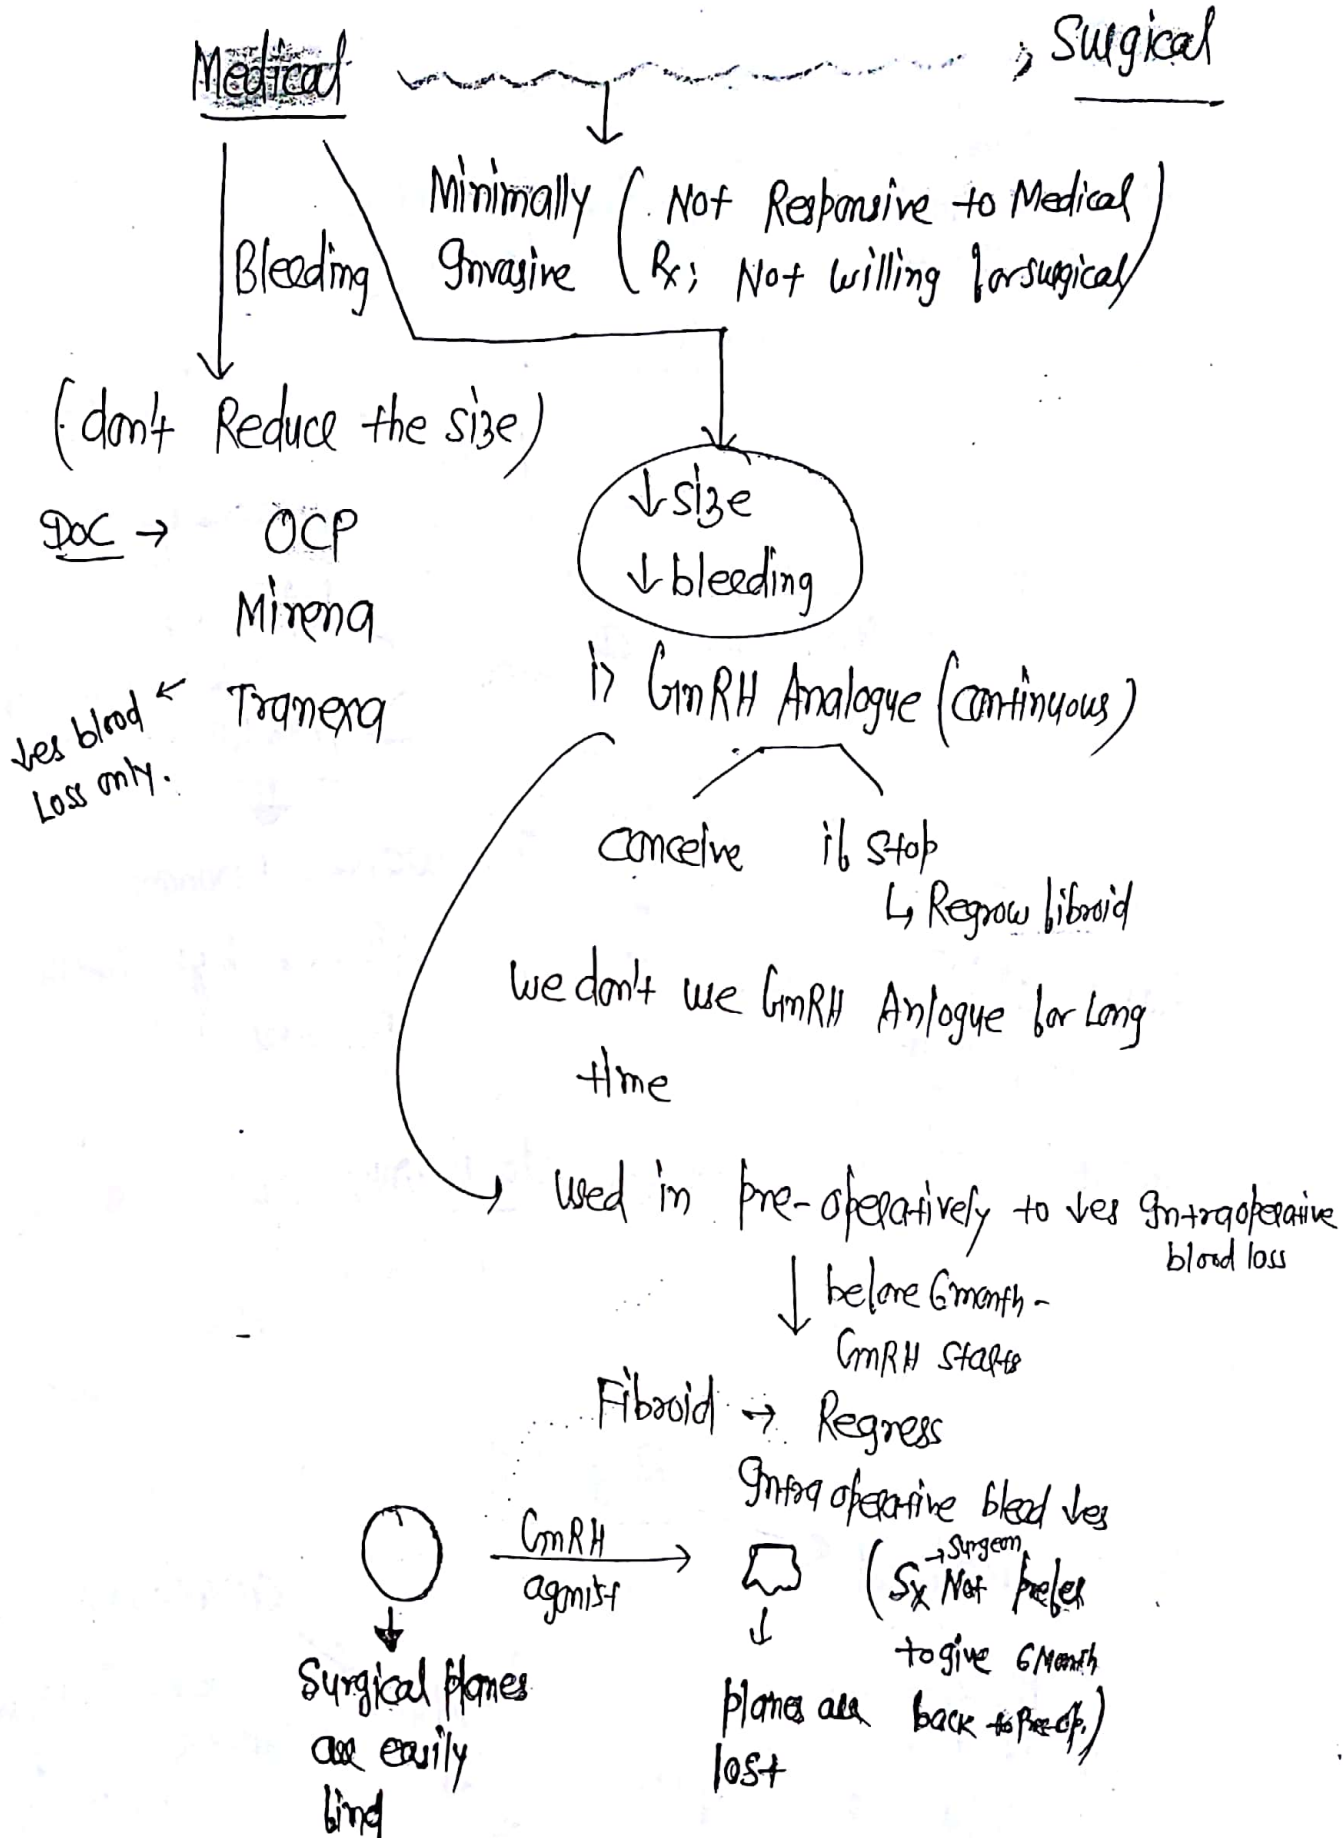 Medical , Surgical
Minimally (Not Responsive to Medical
Invasive Rx; Not willing for surgical)
Bleeding
(don't Reduce the size)
DOC → OCP
Mirena
Tranexa
↓es blood
Loss only.
↓ size
↓ bleeding
1> GnRH Analogue (continuous)
conceive if stop
↳ Regrow fibroid
we don't use GnRH Anlogue for Long
time
used in pre-operatively to ↓es Intraoperative
blood loss
before 6month -
GnRH starts
Fibroid → Regress
Intra operative bleed ↓es
GnRH
agonist
→ Surgeon
(Sx Not prefer
to give 6 Month
back to Pre-op.)
Surgical planes
are easily
find
planes are
lost